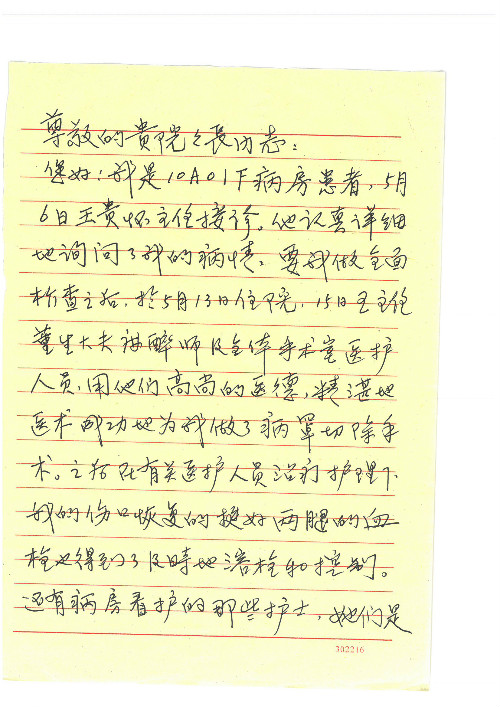 尊敬的贵院之長同志:
您好!我是10A01F病房患者,5月
6日王贵怀主任接诊。他认真详细
地询问了我的病情。要我做全面
检查之后,於5月13日住院,15日王主任
董生大夫麻醉师及全体手术室医护
人员,用他们高尚的医德,精湛地
医术成功地为我做了病罩切除手
术。之后在有关医护人员治疗护理下
我的伤口恢复的挺好两腿的血
栓也得到了及時地溶栓和控制。
还有病房看护的那些护士,她们是
302216